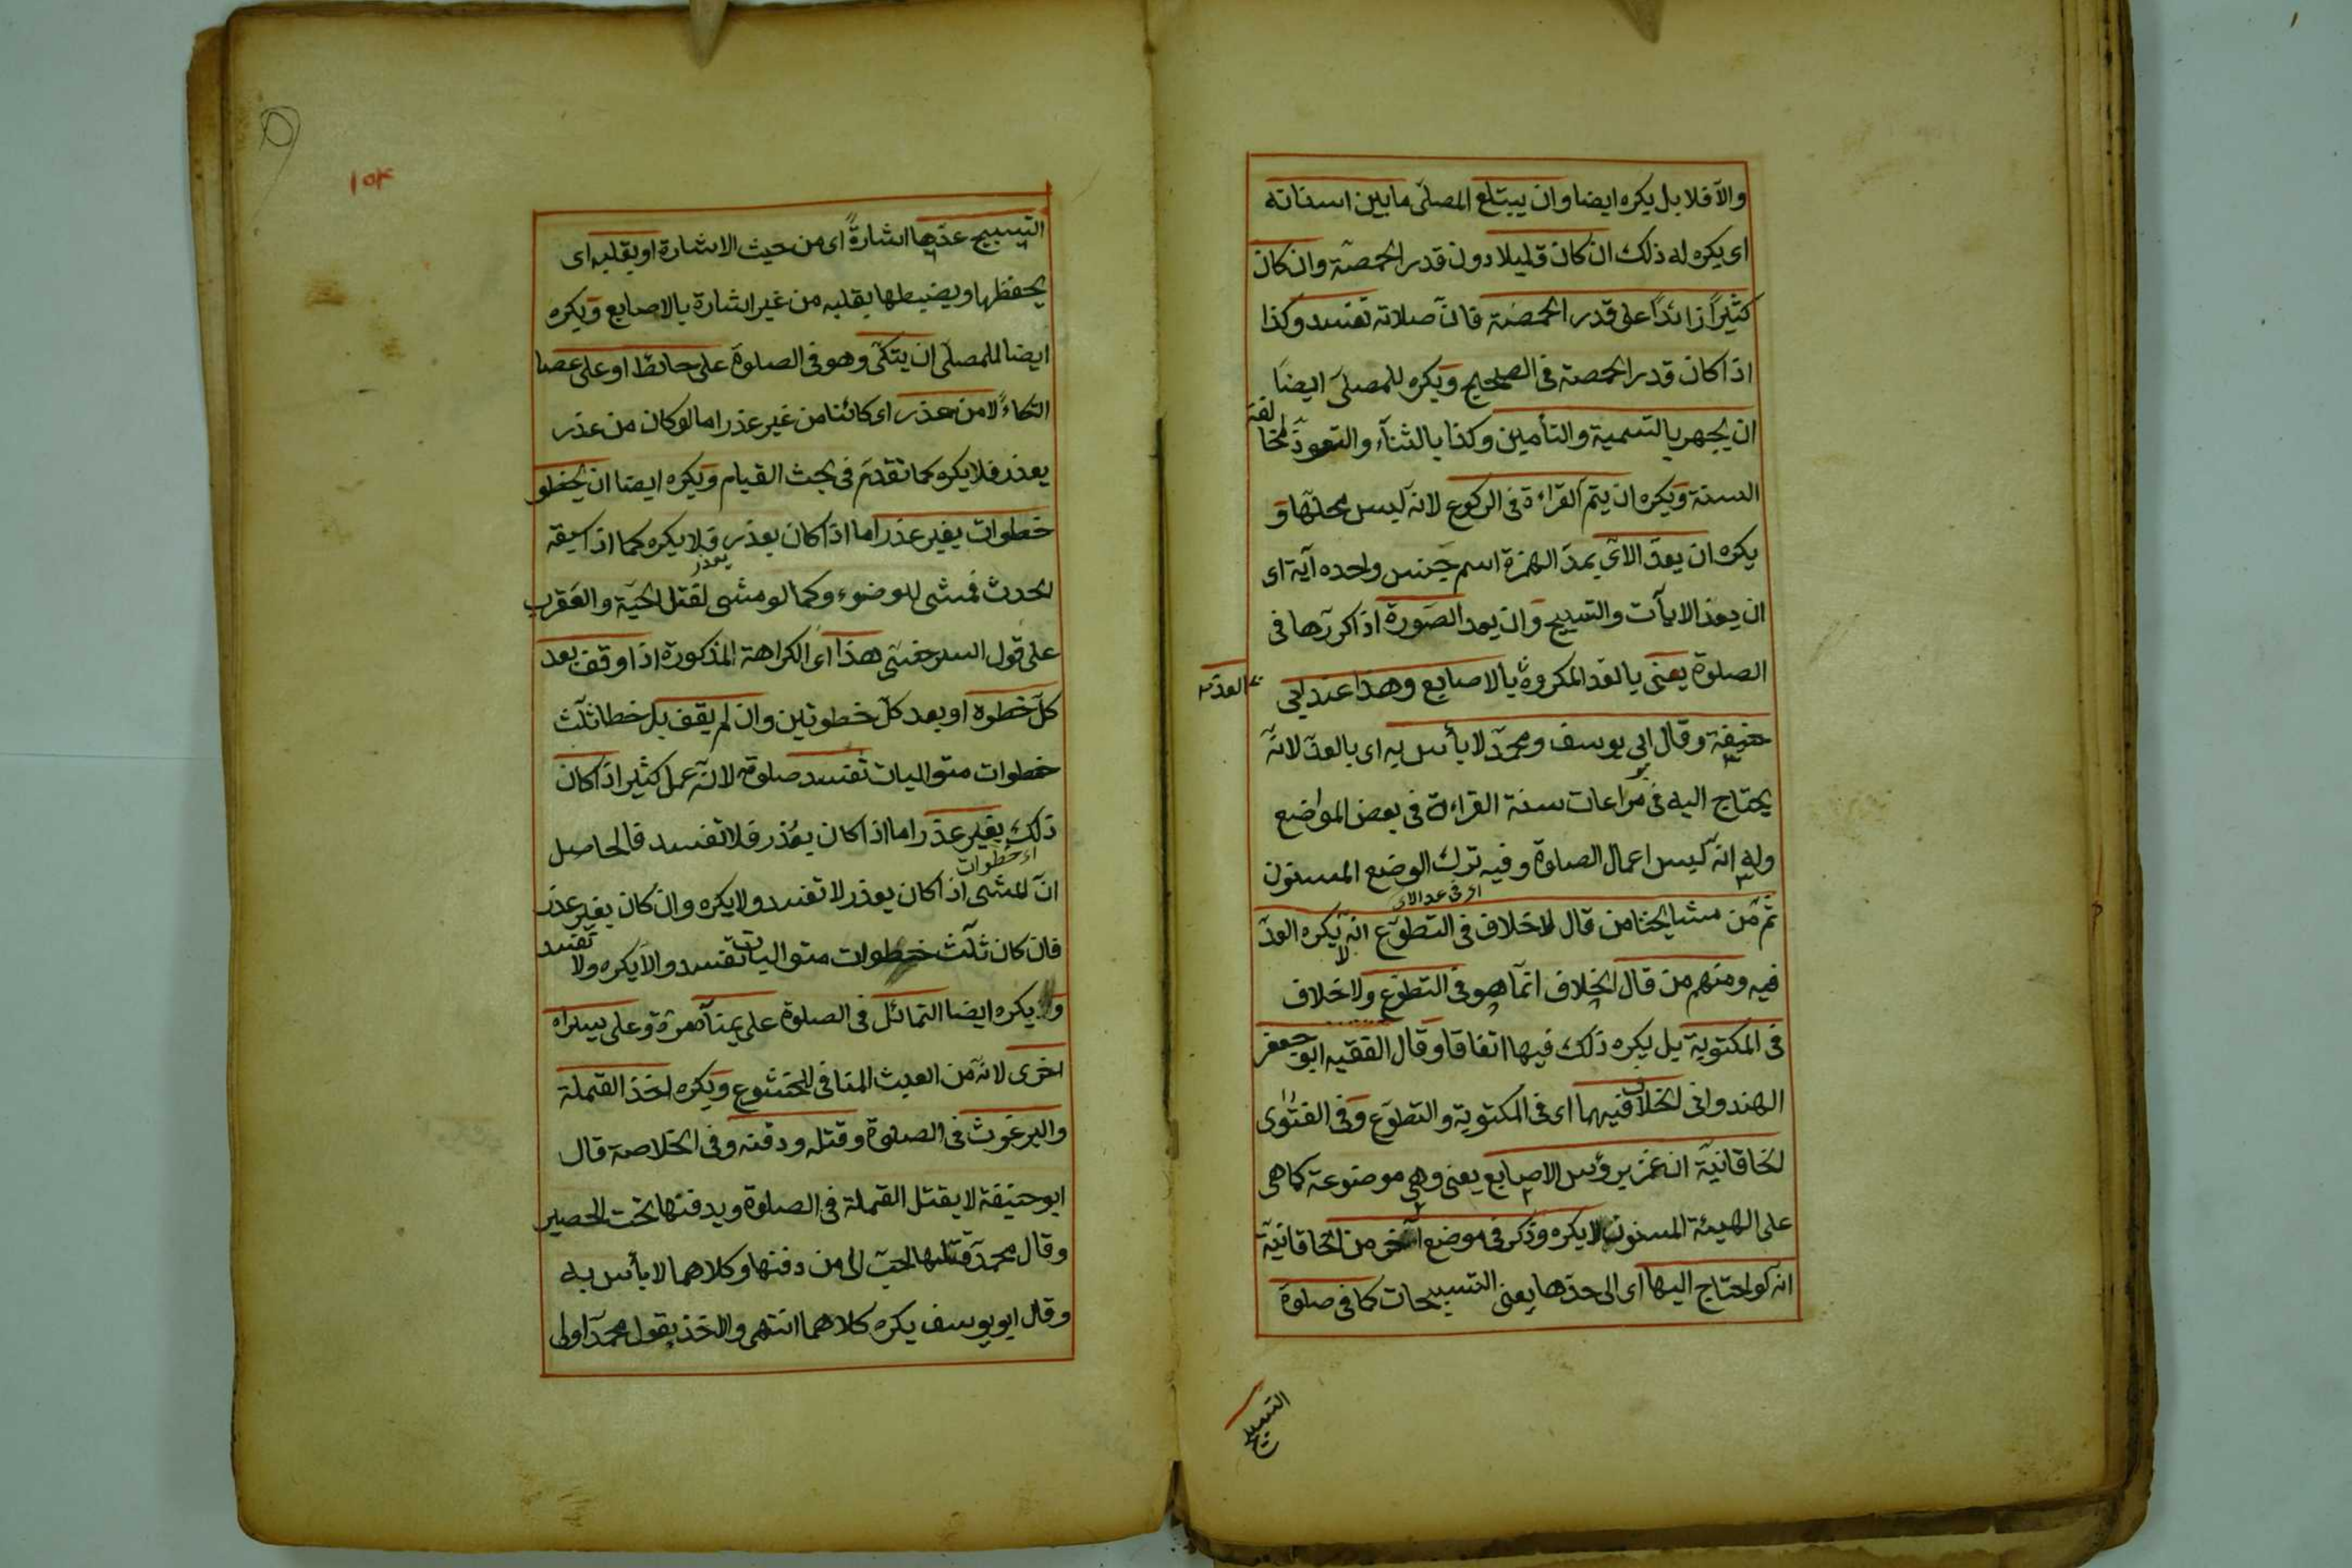 والّا فلا بل يكره ايضا وان يبتلع المصلّى ما بين اسنانه
اى يكره له ذلك ان كان قليلا دون قدر الحمصة وان كان
كثيرًا زائدًا على قدر الحمصة فانّ صلاته تفسد وكذا
اذا كان قدر الحمصة فى الصحيح ويكره للمصلى ايضا
ان يجهر بالتسمية والتأمين وكذا بالثناء والتعوذ لمخالفة
السنة ويكره ان يتم القراءة فى الركوع لانه ليس محلّها و
يكره ان يعدّ الآى بمدّ الهمزة اسم جنس واحده آية اى
ان يعد الايآت والتسبيح وان يعد الصورة اذا كررها فى
الصلوة يعنى بالعد المكروه بالاصابع وهذا عند ابى
العدّ
حنيفة وقال ابى يوسف ومحمّد لا بأس به اى بالعدّ لانّه
يحتاج اليه فى مراعات سنة القراءة فى بعض المواضع
وله انه ليس اعمال الصلوة وفيه ترك الوضع المسنون
اى فى عد الآى
ثم من مشايخنا من قال لا خلاف فى التطوّع انه لا يكره العدّ
فيه ومنهم من قال الخلاف انّما هو فى التطوّع ولا خلاف
فى المكتوبة بل يكره ذلك فيها اتفاقا وقال الفقيه ابو جعفر
الهندوانى الخلاف فيهما اى فى المكتوبة والتطوّع وفى الفتوى
الخاقانيّة ان غمز برؤس الاصابع يعنى وهى موضوعة كما هى
على الهيئة المسنون لا يكره وذكر فى موضع آخر من الخاقانيّة
انه لو احتاج اليها اى الى عدّها يعنى التسبيحات كما فى صلوة
التسبيح
١٥٤
التسبيح عدّها اشارةً اى من حيث الاشارة او بقلبه اى
يحفظها ويضبطها بقلبه من غير اشارة بالاصابع ويكره
ايضا للمصلى ان يتكّى وهو فى الصلوة على حائط او على عصا
اتكاءً لا من عذر اى كائنا من غير عذر اما لو كان من عذر
بعذر فلا يكره كما تقدّم فى بحث القيام ويكره ايضا ان يخطو
خطوات بغير عذر اما اذا كان بعذر فلا يكره كما اذا سبقه
بعذر
الحدث فمشى للوضوء وكما لو مشى لقتل الحيّة والعقرب
على قول السرخسى هذا اى الكراهة المذكورة اذا وقف بعد
كلّ خطوة او بعد كلّ خطوتين وان لم يقف بل خطا ثلث
خطوات متواليات تفسد صلوته لانّه عمل كثير اذا كان
ذلك بغير عذر اما اذا كان بعُذر فلا تفسد فالحاصل
اى خطوات
انّ المشى اذا كان بعذر لا تفسد ولا يكره وان كان بغير عذر
فان كان ثلث خطوات متواليات تفسد والّا يكره ولا تفسد
ويكره ايضا التمائل فى الصلوة على يمناه مرّة وعلى يسراه
اخرى لانّه من العبث المنافى للخشوع ويكره اخذ القملة
والبرغوث فى الصلوة وقتله ودفنه وفى الخلاصة قال
ابو حنيفة لا يقتل القملة فى الصلوة ويدفنها تحت الحصير
وقال محمّد قتلها احبّ الى من دفنها وكلاهما لا بأس به
وقال ابو يوسف يكره كلاهما انتهى والاخذ بقول محمّد اولى